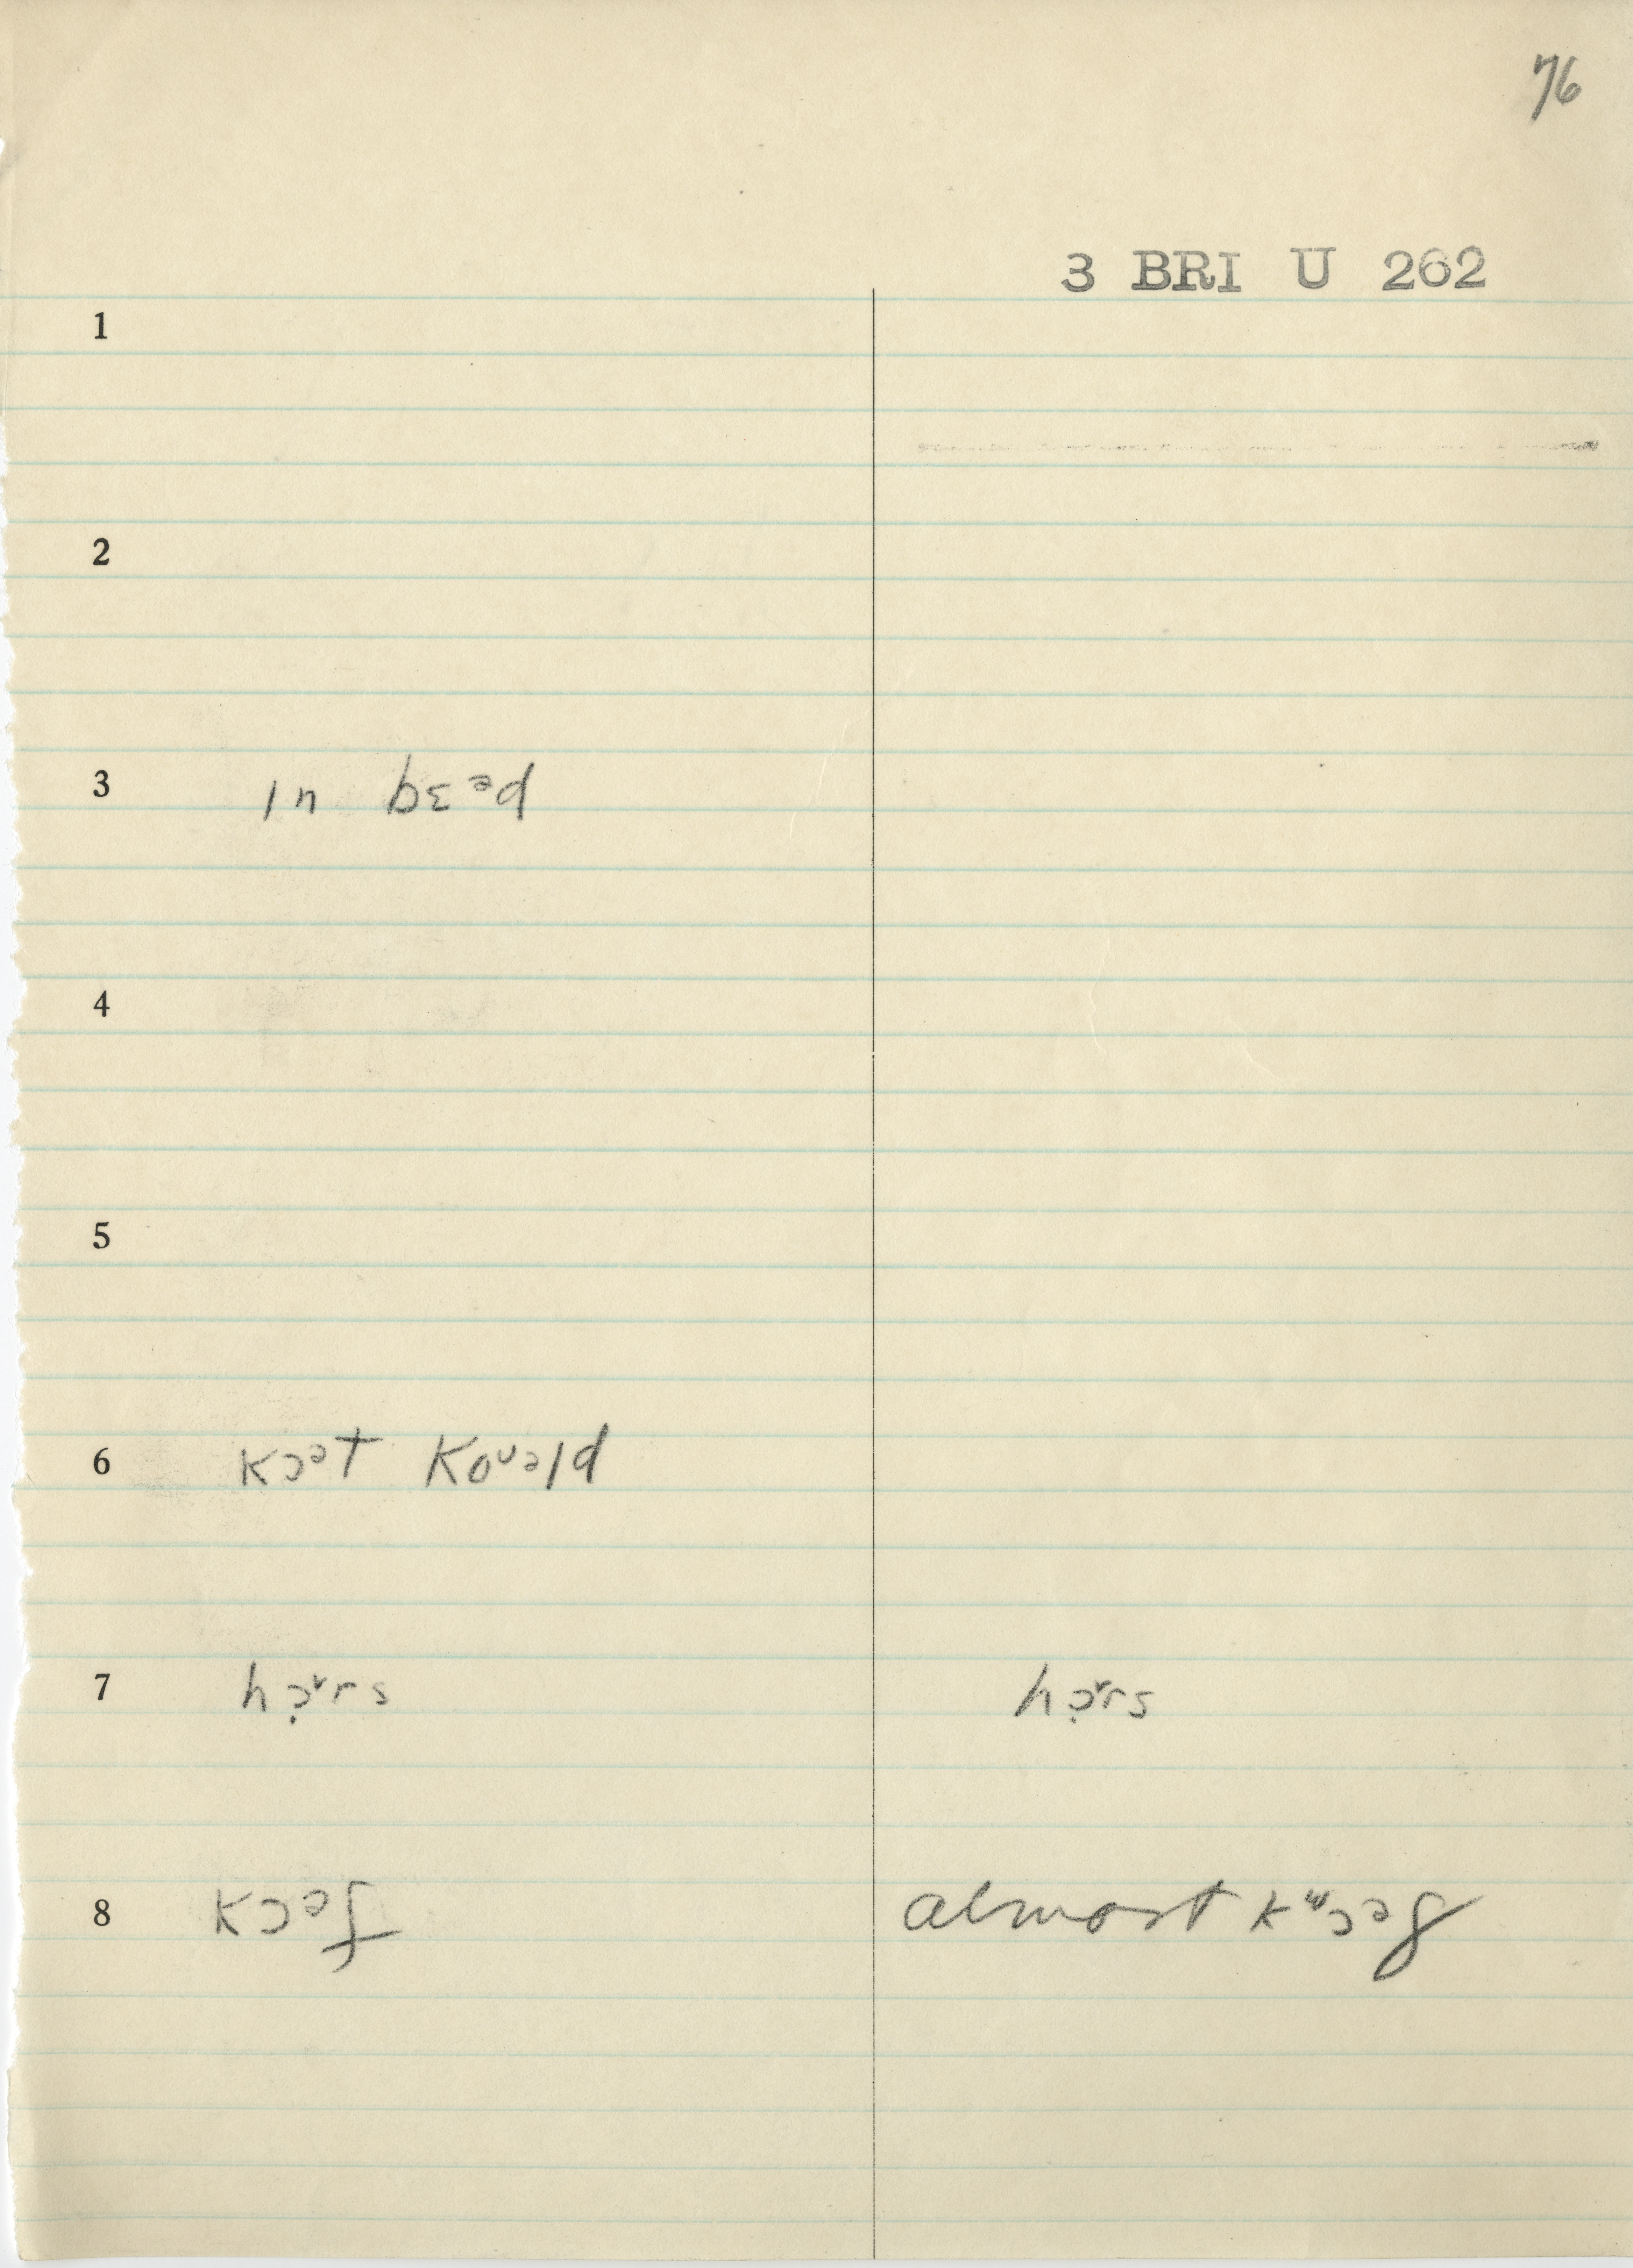 76
3 BRI U 262
1
2
3 ɪn bɛᵊd
4
5
6 kɔᵊt koᶷᵊld
7 hɔ̣ˠrs hɔ̣ˠrs
8 kɔᵊf almost kᵚɔᵊf